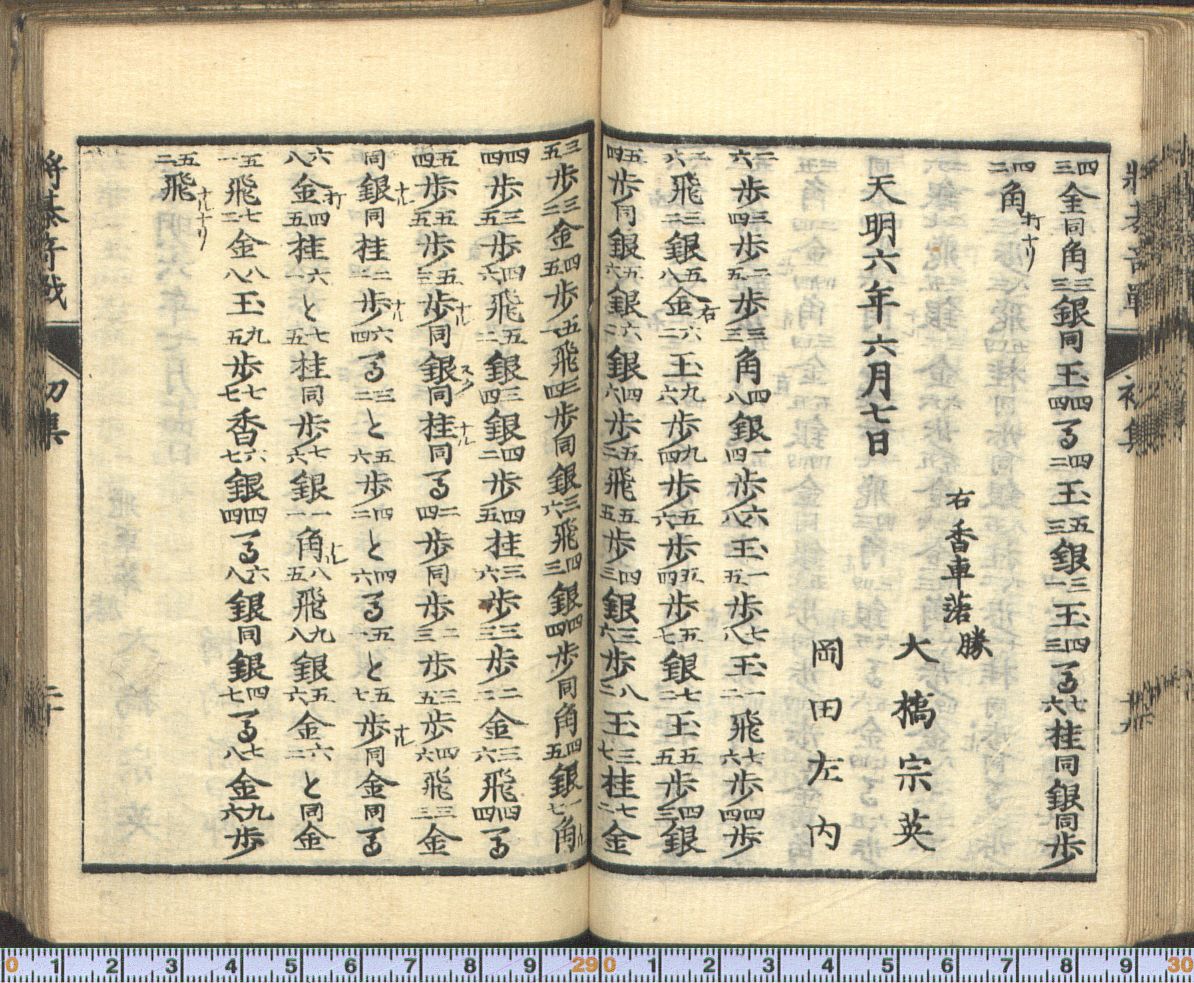 四三金同角三三銀同玉四四馬四二玉五三銀三一玉四三馬七六桂同銀同歩
四二角打ナリ
右香車落勝
大橋宗英
天明六年六月七日
岡田左内
二六歩三四歩一五歩三三角四八銀一四歩六八玉一五歩七八玉一二飛七六歩四四歩
二六飛三二銀五八金右六二玉九六歩九四歩五六歩五四歩五七銀七二玉五五歩四三銀
五四歩同銀五六銀六二銀四六歩五二飛五五歩四三銀三六歩八二玉三七桂七二金
三五歩三二金四五歩五一飛三四歩同銀三六飛四三銀四四歩同角四五銀一七角ナル
四四歩三五歩四六飛五二銀三四銀四二歩四五桂三六歩三三歩二二金三六飛四四馬
五四歩五五歩五三歩ナル同銀スク同桂ナル同馬二四歩同歩二三歩三五歩四六飛三三金
同銀ナル同桂二二歩ナル六四馬三二と五六歩四二と四六馬五二と五七歩ナル同金同馬
六八金打四五桂六一と七五桂同歩七六銀一一角ナル八五飛九八銀五六金六二と同金
五一飛七二金八八玉九五歩七七香六七銀四四馬六八銀同銀四七馬七八金九六歩
五二飛ナルナリ
将棊奇戦
初集
二十